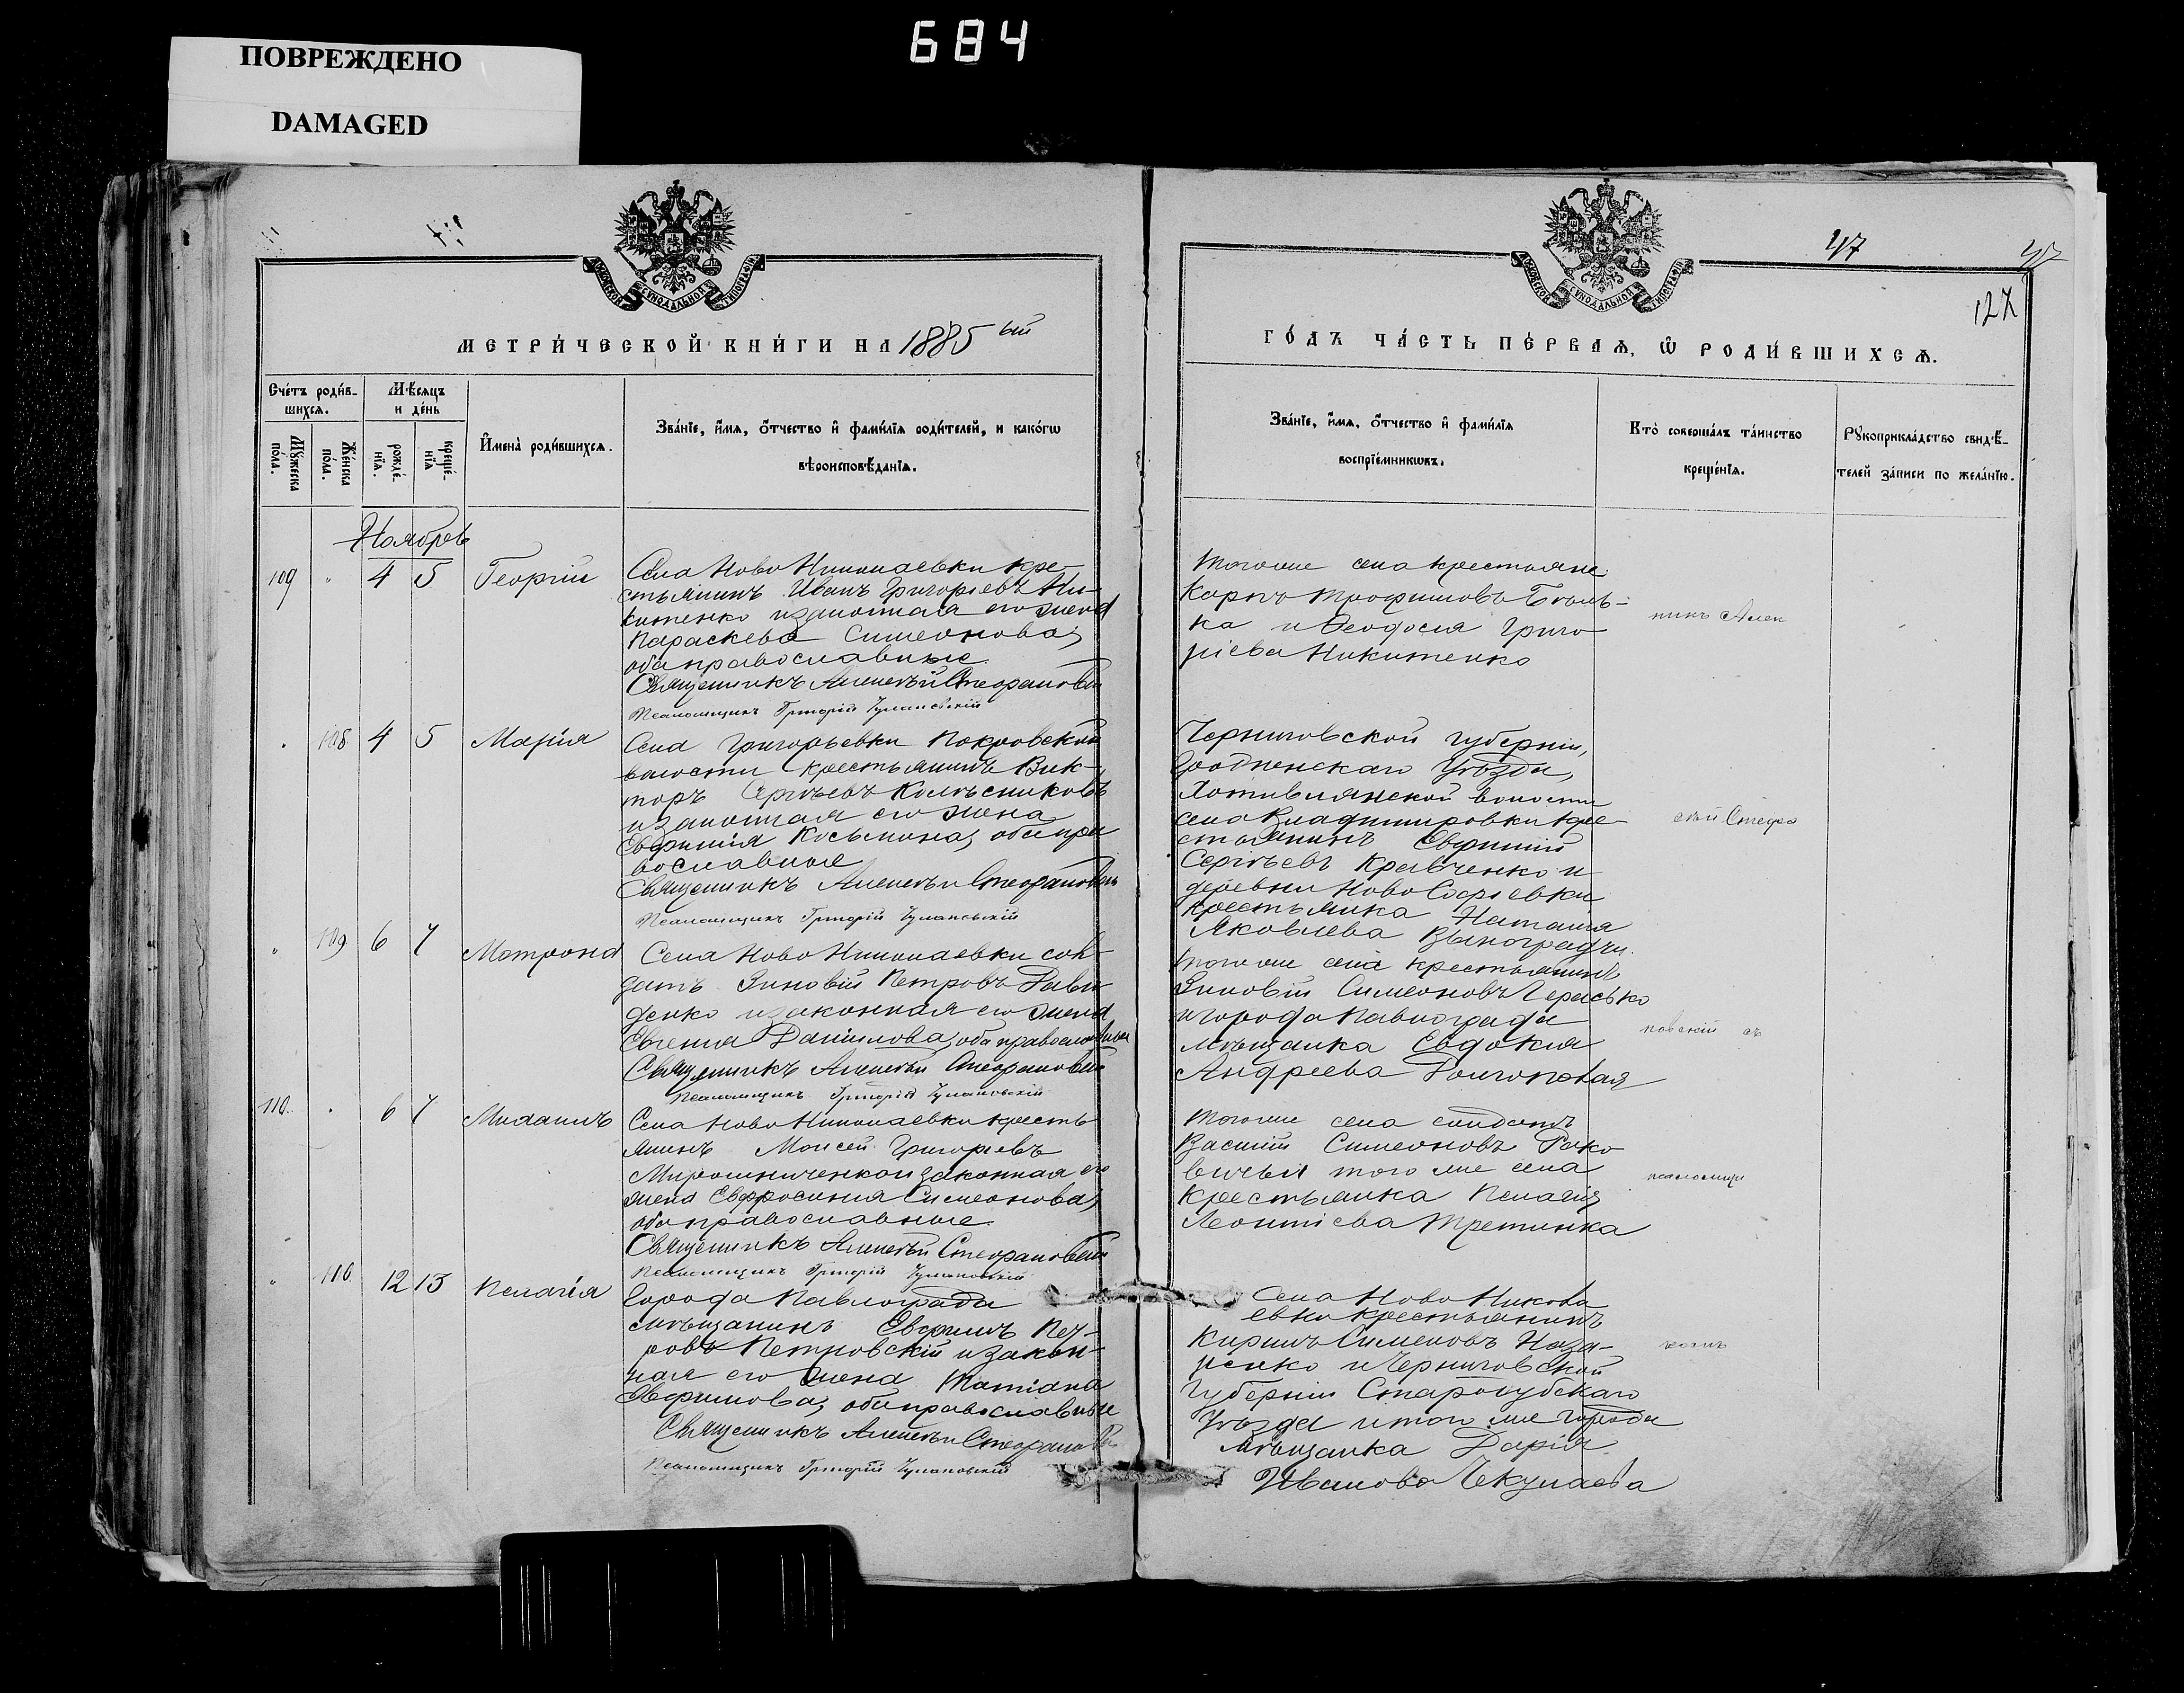 684
ПОВРЕЖДЕНО
DAMAGED
МОСКОВСКОЙ СѴНОДАЛЬНОЙ ТИПОГРАФІИ
МЕТРИ́ЧЕСКОЙ КНИ́ГИ НА 1885 ый
Сче́тъ роди́в-
шихсѧ.
Мꙋ́жеска
по́ла.
Же́нска
по́ла.
Мѣ́сѧцъ
и де́нь
рожде́-
нїѧ.
креще́-
нїѧ
И҆мена̀ роди́вшихсѧ.
Зва́нїе, и҆́мѧ, ѻ҆́тчество и҆ фами́лїѧ роди́телей, и како́гѡ
вѣроисповѣ́данїѧ.
Ноябрь
109 " 4 5 Георгій
Села Ново Николаевки кре-
стьянинъ Иванъ Григорьевъ Ни-
китенко изаконная его жена
Параскева Симеонова,
оба православные.
Священникъ Алексѣй Стефановскій
Псаломщикъ Григорій
" 108 4 5 Марія
Села Григорьевки Покровской
волости крестьянинъ Вик-
торъ Сергѣевъ Колѣсниковъ
изаконная его жена
Евфимія Косьмина, оба пра
вославные
Священникъ Алексѣй Стефановскій
Псаломщикъ Григорій
" 109 6 7 Матрона
Села Ново Николаевки сол-
датъ Зиновій Петровъ Дави
денко изаконная его жена
Евгенія Даніилова, оба православные
Священникъ Алексѣй Стефановскій
Псаломщикъ Григорій
110. " 6 7 Михаилъ
Села Ново Николаевки кресть
янинъ Моисей Григорьевъ
Мирошниченко и законная его
жена Евфросинія Симеонова,
оба православные.
Священникъ Алексѣй Стефановскій
Псаломщикъ Григорій
" 110. 12 13 Пелагія
Города Павлограда
мѣщанинъ Евфимъ Пет-
ровъ Петровскій и закон-
ная его жена Татіана
Евфимова, оба православные
Священникъ Алексѣй Стефановскій
Псаломщикъ Григорій
МОСКОВСКОЙ СѴНОДАЛЬНОЙ ТИПОГРАФІИ
47
47
127
ГО́ДЪ ЧА́СТЬ ПЕ́РВАѦ, Ѡ҆ РОДИ́ВШИХСѦ.
Зва́нїе, и҆́мѧ, ѻ҆́тчество и҆ фами́лїѧ
воспрїе́мникѡвъ.
Кто̀ соверша́лъ та́инство
креще́нїѧ.
Рꙋкоприкла́дство свидѣ́-
телей за́писи по жела́нїю.
Тогоже села крестьяне
Карпъ Трофимовъ
ка и Феодосія Григо
ріева Никитенко
никъ Алек
Черниговской губерніи,
Уѣзда,
волости
села Владимировки кре-
стьянинъ Евфимій
Сергѣевъ Кравченко и
деревни Ново Софіевки
крестьянка Наталія
Яковлева
сѣй Стефа
Тогоже села крестьянинъ
Зиновій Симеоновъ Герасько
и города Павлограда
мѣщанка Евдокія
Андреева
новскій съ
Тогоже села солдатъ
Василій Симеоновъ
того же села
крестьянка Пелагія
Леонтіева
псаломщи
Села Ново Никола
евки крестьянинъ
Кирилъ Симеоновъ Наза-
ренко и Черниговской
Губерніи Стародубскаго
Уѣзда и того же города
мѣщанка Дарія
Иванова Чекунаева
комъ